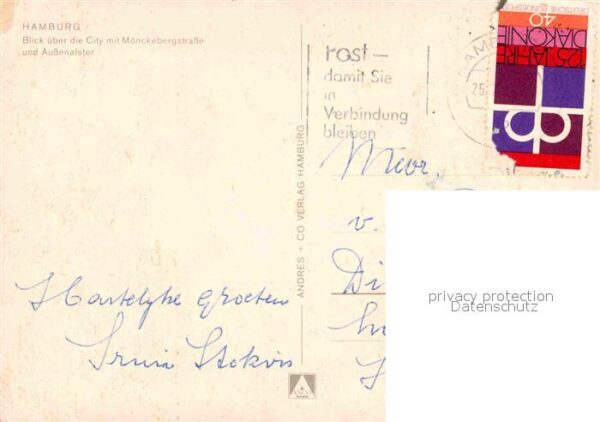 HAMBURG
Blick über die City mit Mönckebergstraße
und Außenalster
Post –
damit Sie
in
Verbindung
bleiben
25.
DEUTSCHE BUNDESPOST
40
125 JAHRE
DIAKONIE
ANDRES + CO VERLAG HAMBURG
Mevr.
v.
Di
Hartelijke groeten
privacy protection
Datenschutz